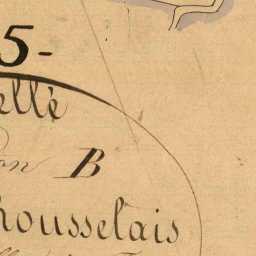 5-
ellé
on B
rousselais